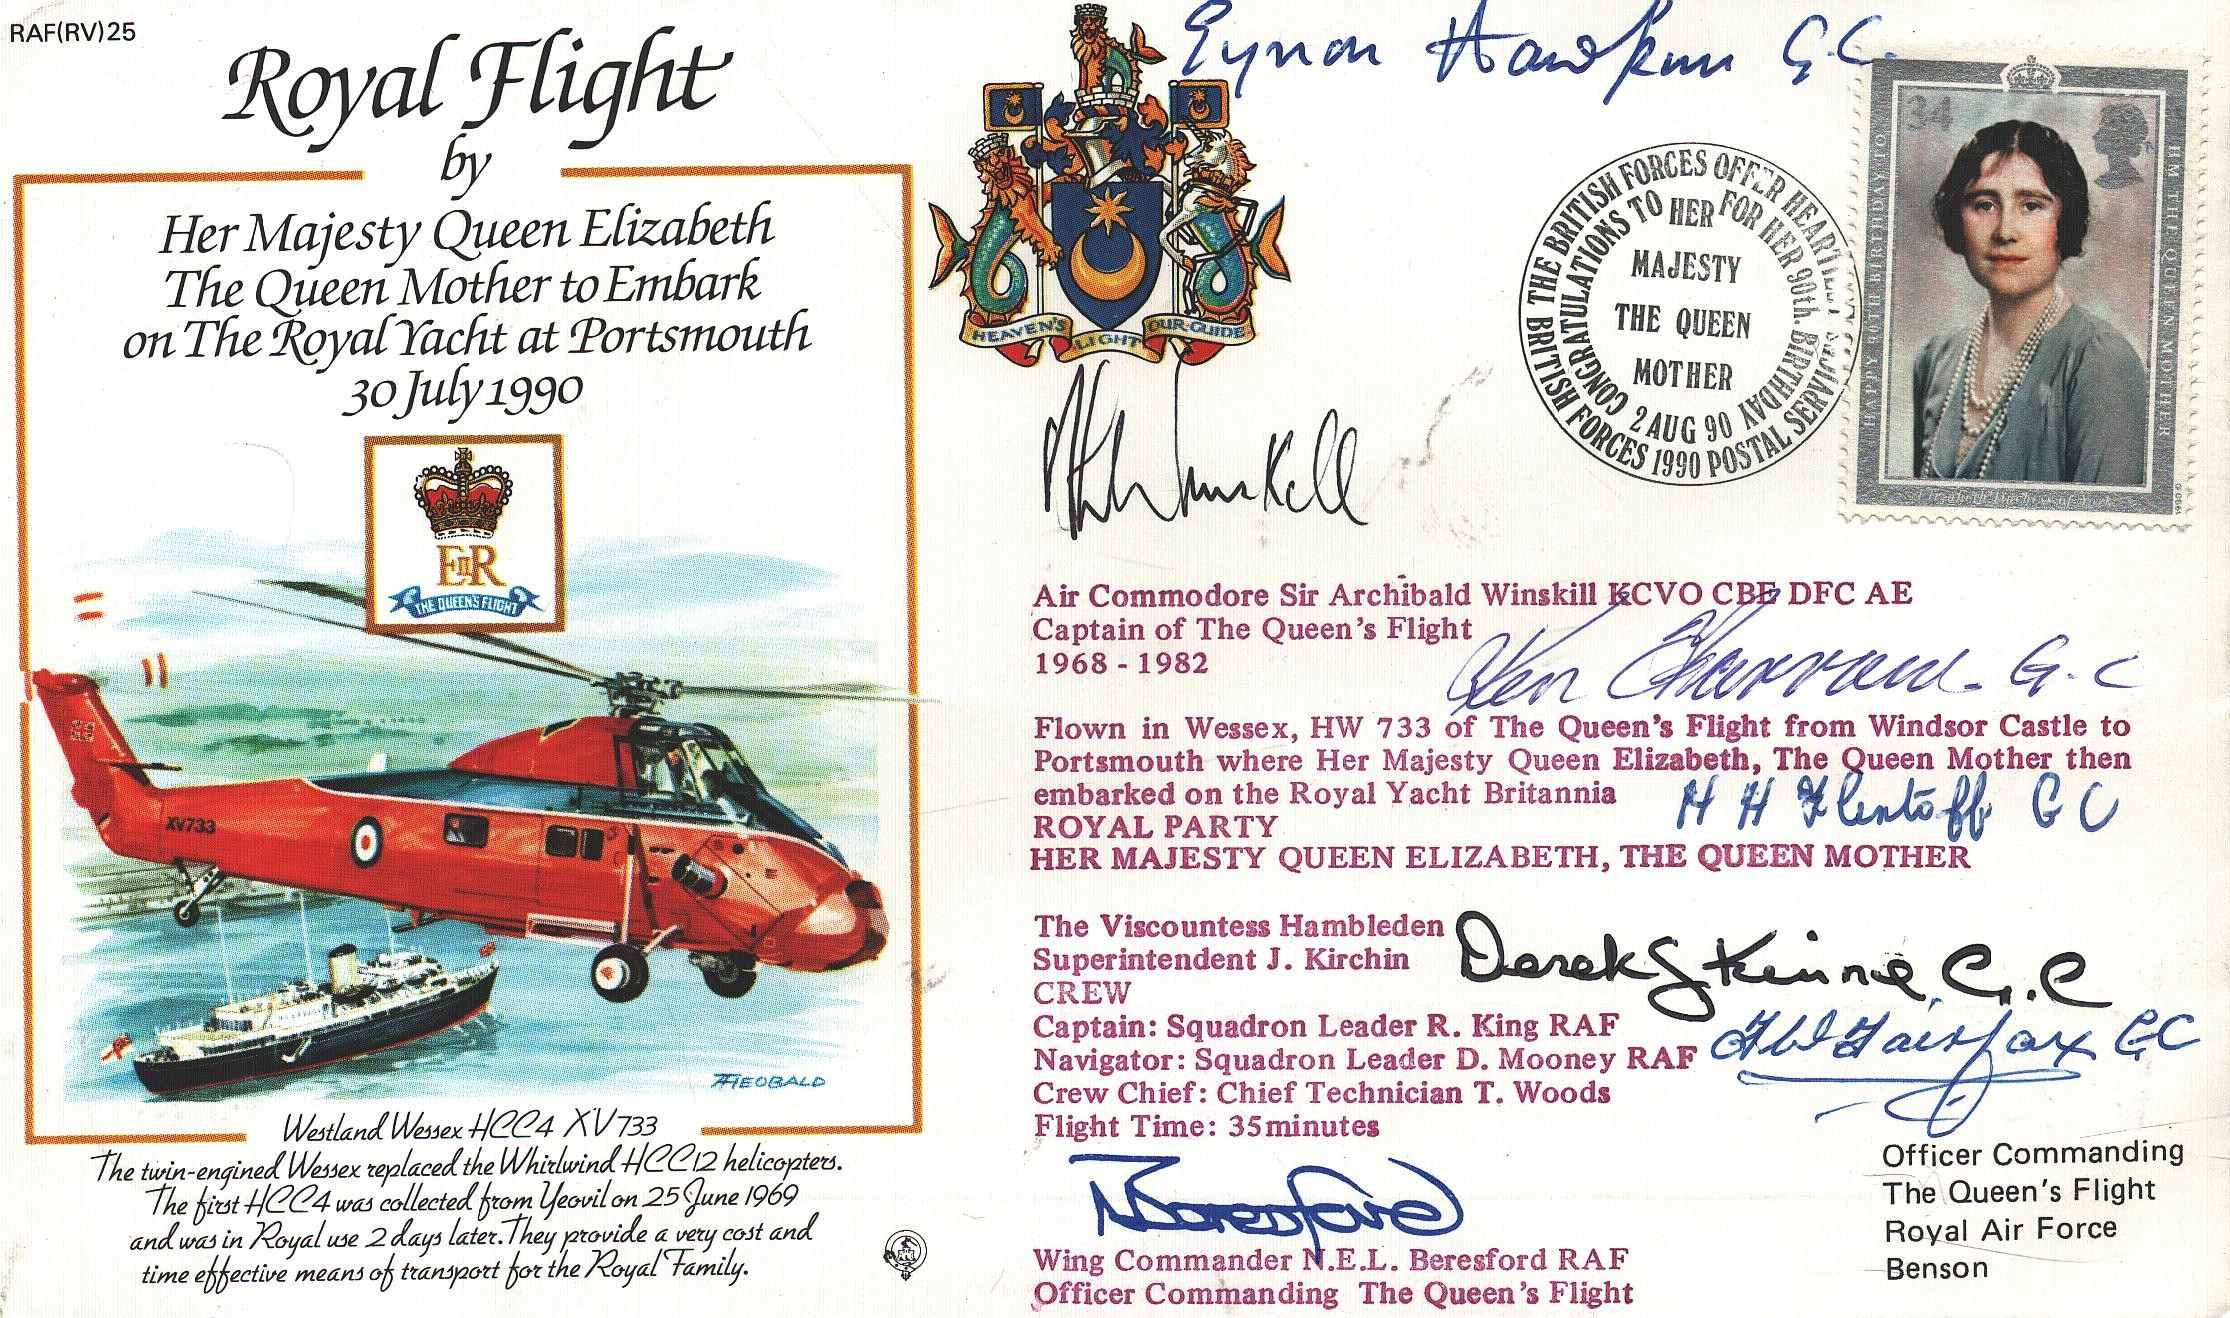 RAF(RV)25
Royal Flight
by
Her Majesty Queen Elizabeth
The Queen Mother to Embark
on The Royal Yacht at Portsmouth
30 July 1990
EIIR
THE QUEEN'S FLIGHT
XV733
THEOBALD
Westland Wessex HCC4 XV733
The twin-engined Wessex replaced the Whirlwind HCC12 helicopters.
The first HCC4 was collected from Yeovil on 25 June 1969
and was in Royal use 2 days later. They provide a very cost and
time effective means of transport for the Royal Family.
Eynon Hawkins G.C.
HEAVEN'S LIGHT OUR GUIDE
BRITISH FORCES 1990 POSTAL SERVICES
THE BRITISH FORCES OFFER HEARTIEST
CONGRATULATIONS TO HER
FOR HER 90th. BIRTHDAY
MAJESTY
THE QUEEN
MOTHER
2 AUG 90
34
HAPPY 90TH BIRTHDAY TO
HM THE QUEEN MOTHER
Elizabeth Duchess of York
© 1990
Winskill
Air Commodore Sir Archibald Winskill KCVO CBE DFC AE
Captain of The Queen's Flight
1968 - 1982
Ken G.C
Flown in Wessex, HW 733 of The Queen's Flight from Windsor Castle to
Portsmouth where Her Majesty Queen Elizabeth, The Queen Mother then
embarked on the Royal Yacht Britannia
H H Flintoff GC
ROYAL PARTY
HER MAJESTY QUEEN ELIZABETH, THE QUEEN MOTHER
The Viscountess Hambleden
Superintendent J. Kirchin
Derek G Kinne G.C
CREW
Captain: Squadron Leader R. King RAF
Navigator: Squadron Leader D. Mooney RAF
Fairfax GC
Crew Chief: Chief Technician T. Woods
Flight Time: 35minutes
Beresford
Wing Commander N.E.L. Beresford RAF
Officer Commanding The Queen's Flight
Officer Commanding
The Queen's Flight
Royal Air Force
Benson